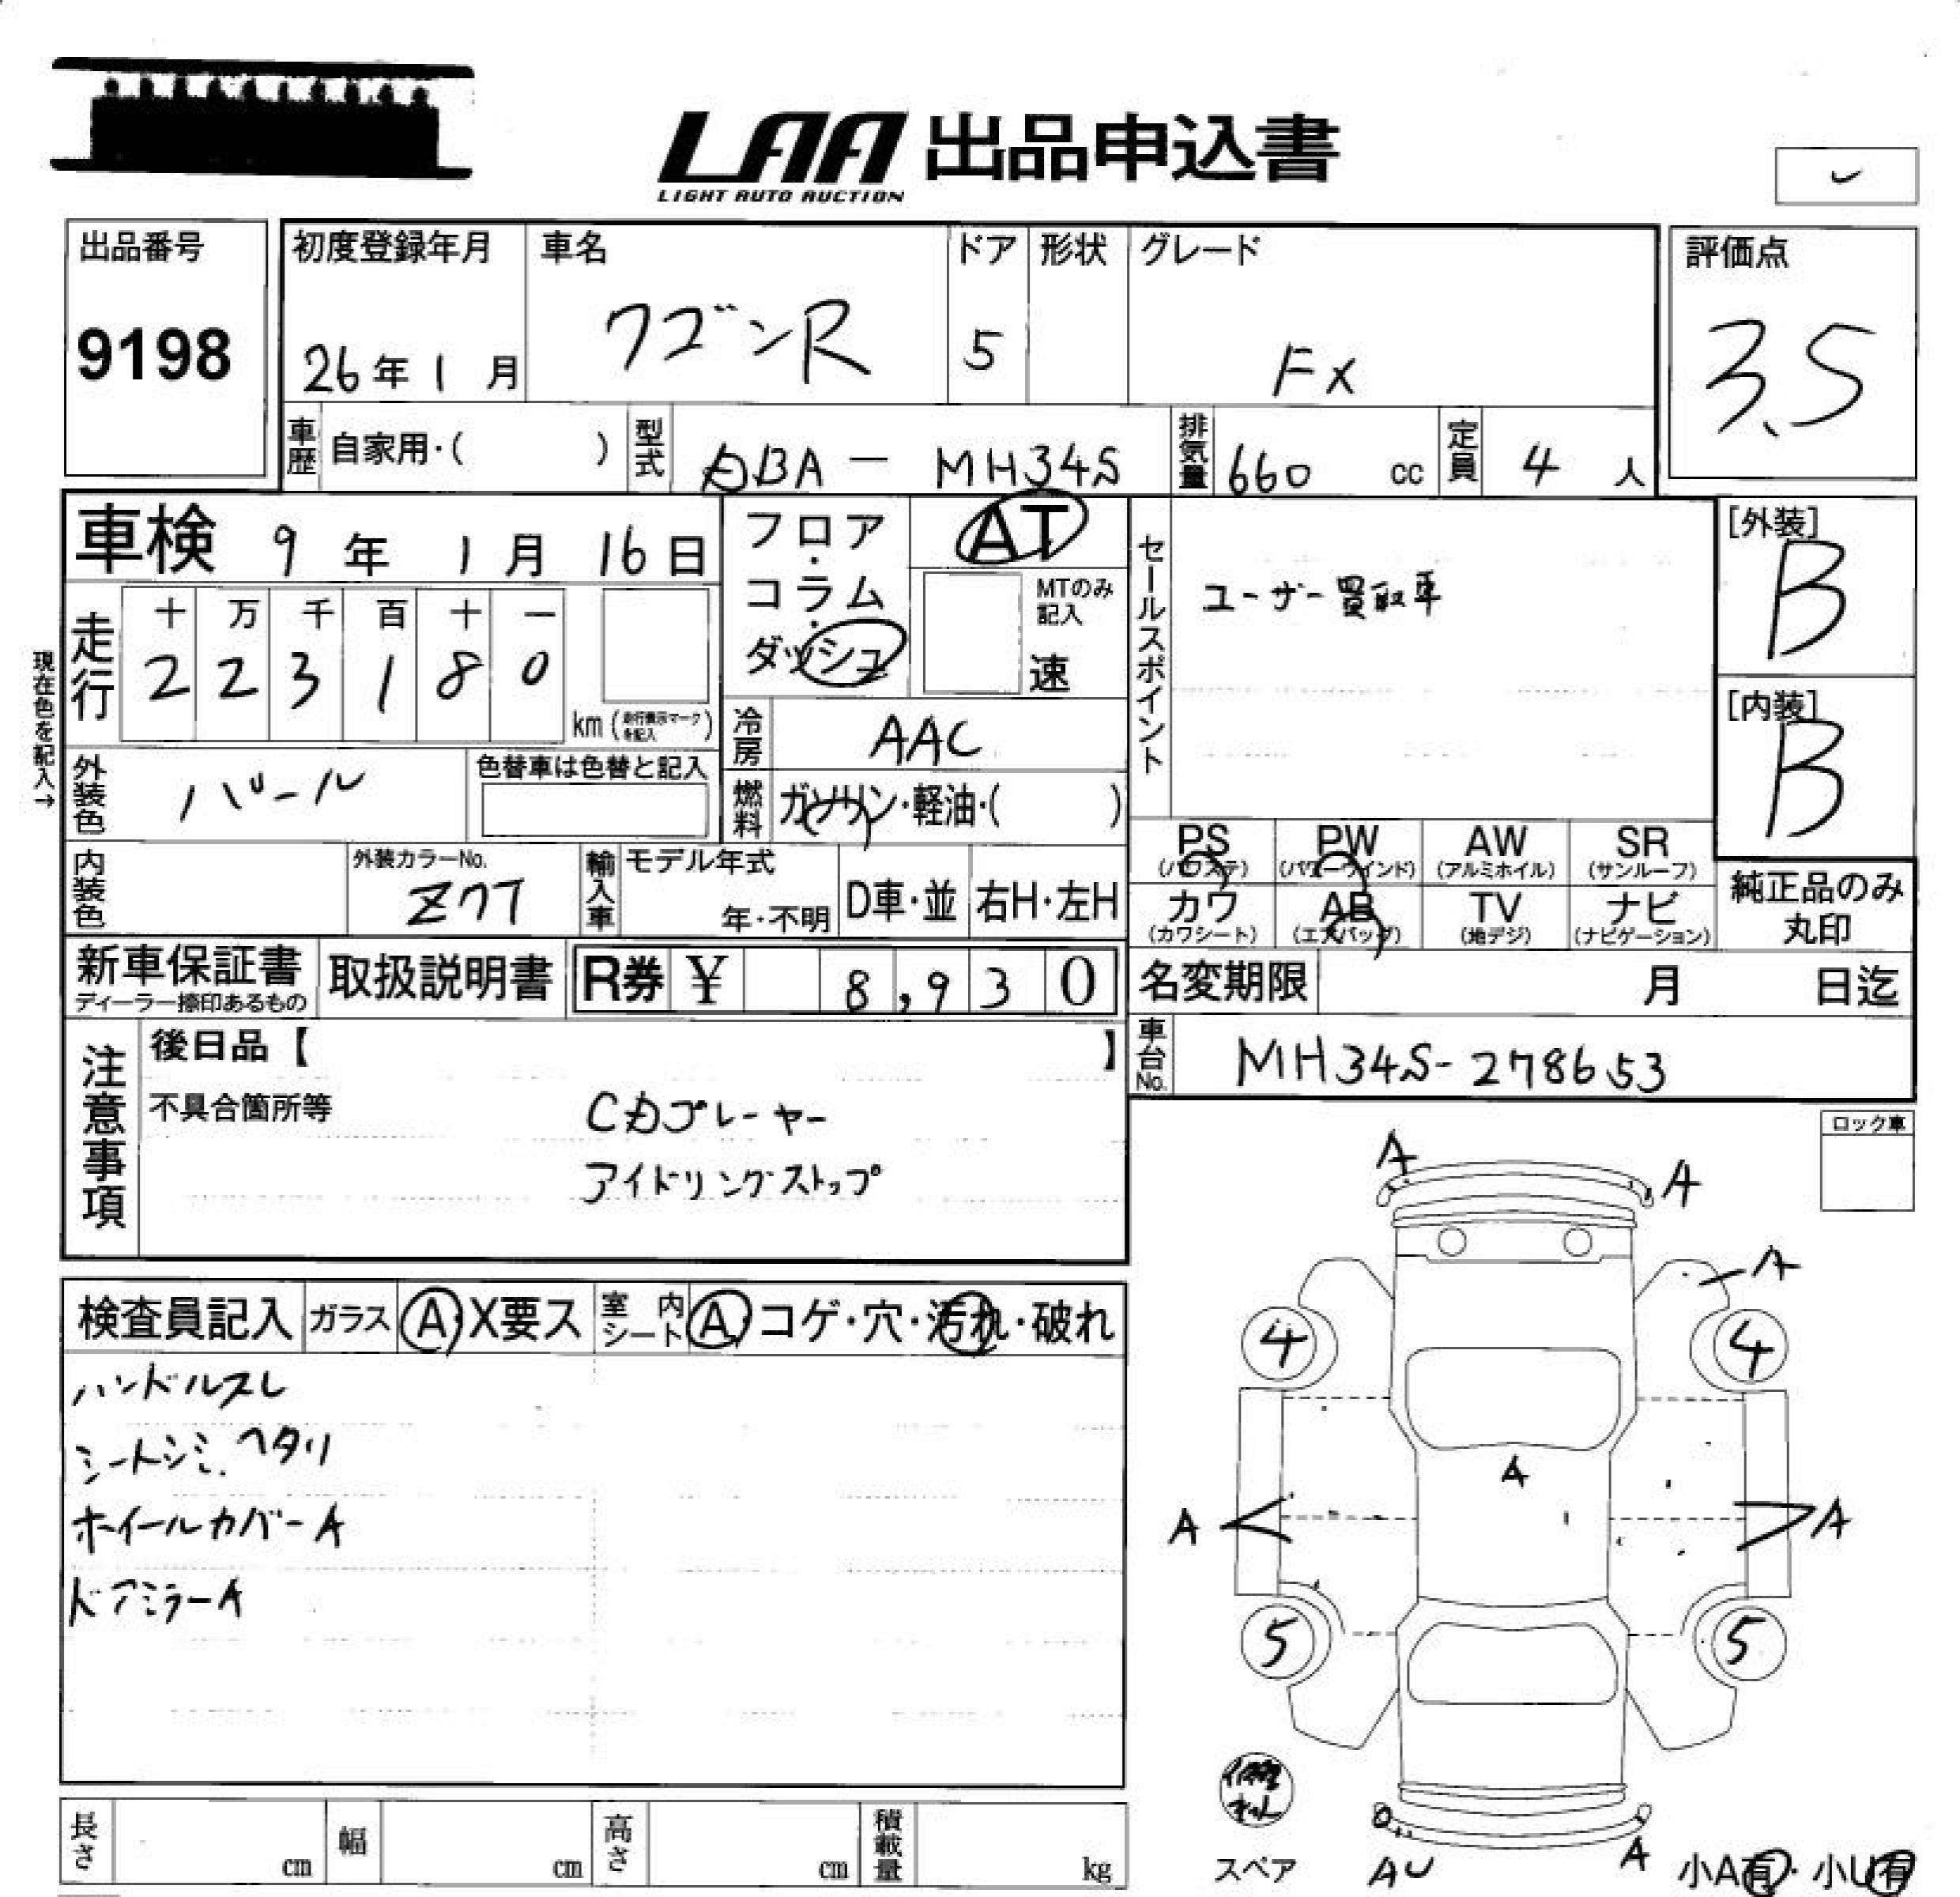 LAA 出品申込書
LIGHT AUTO AUCTION
出品番号
9198
初度登録年月
26年1月
車名
ワゴンR
ドア
5
形状
グレード
FX
評価点
3.5
車歴
自家用・( )
型式
DBA-MH34S
排気量
660 cc
定員
4 人
車検 9年1月16日
フロア・コラム・ダッシュ
AT
MTのみ記入
速
セールスポイント
ユーザー買取車
[外装]
B
[内装]
B
現在色を記入→
走行
十 万 千 百 十 一
2 2 3 1 8 0
km (走行表示マークを記入)
冷房
AAC
外装色
パール
色替車は色替と記入
燃料
ガソリン・軽油・( )
PS
(パワステ)
PW
(パワーウインド)
AW
(アルミホイル)
SR
(サンルーフ)
カワ
(カワシート)
AB
(エアバッグ)
TV
(地デジ)
ナビ
(ナビゲーション)
純正品のみ
丸印
内装色
外装カラーNo.
Z7T
輸入車
モデル年式
年・不明
D車・並
右H・左H
新車保証書
ディーラー捺印あるもの
取扱説明書
R券 ¥ 8,930
名変期限
月 日迄
車台No.
MH34S-278653
注意事項
後日品【 】
不具合箇所等
CDプレーヤー
アイドリングストップ
ロック車
検査員記入
ガラス
A・X要ス
室内シート
A・コゲ・穴・汚れ・破れ
ハンドルスレ
シートシミ、ヘタリ
ホイールカバーA
ドアミラーA
A
A
A
4
4
A
A
A
5
5
スペア
AU
A
小A有・小U有
長さ
cm
幅
cm
高さ
cm
積載量
kg